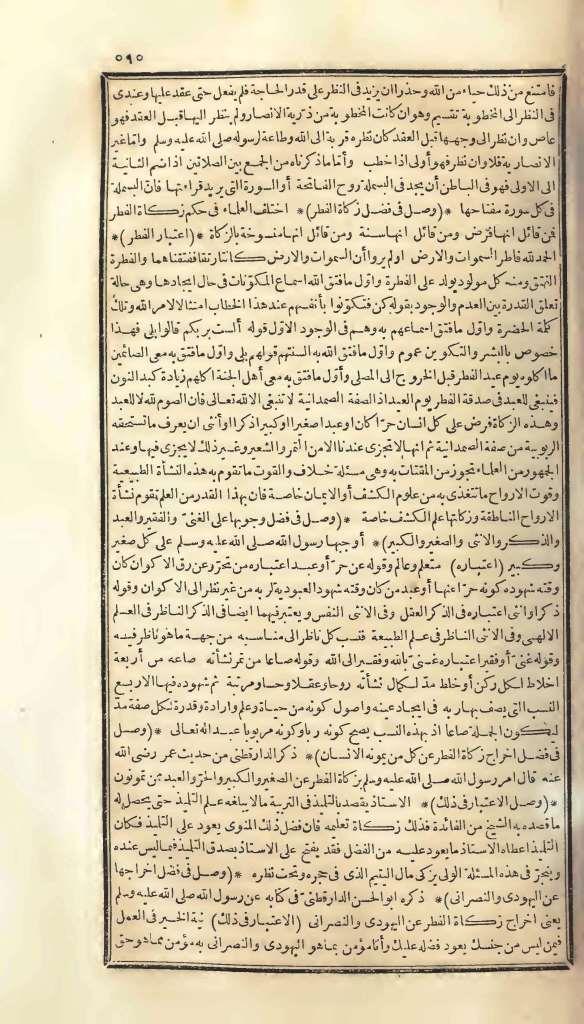 ٥٩٠
فامتنع من ذلك حياء من الله وحذرا ان يزيد فى النظر على قدر الحاجة فلم يفعل حتى عقد عليها وعندى
فى النظر الى المخطوبة تقسيم وهو ان كانت المخطوبة من ذرية الانصار ولم ينظر اليها قبل العقد فهو
عاص وان نظر الى وجهها قبل العقد كان نظره قربة الى الله وطاعة لرسوله صلى الله عليه وسلم وأما غير
الانصارية فلا وان نظر فهو أولى اذا خطب وأما ما ذكرناه من الجمع بين الصلاتين اذا ضم الثانية
الى الاولى فهو فى الباطن أن يجد فى البسملة روح الفاتحة أو السورة التى يريد قراءتها فان البسملة
فى كل سورة مفتاحها *(وصل فى فضل زكاة الفطر)* اختلف العلماء فى حكم زكاة الفطر
فمن قائل انها فرض ومن قائل انها سنة ومن قائل انها منسوخة بالزكاة *(اعتبار الفطر)*
الحمد لله فاطر السموات والارض اولم يروا أن السموات والارض كانتا رتقا ففتقناهما والفطرة
الفتق ومنه كل مولود يولد على الفطرة وأول ما فتق الله اسماع المكونات فى حال ايجادها وهى حالة
تعلق القدرة بين العدم والوجود بقوله كن فتكونوا بأنفسهم عند هذا الخطاب امتثالا لامر الله وتلك
كلمة الحضرة وأول ما فتق اسماعهم به وهم فى الوجود الاول قوله ألست بربكم قالوا بلى فهذا
خصوص بالبشر والتكوين عموم وأول ما فتق الله به السنتهم قولهم بلى وأول ما فتق به معى الصائمين
ما اكلوه يوم عيد الفطر قبل الخروج الى المصلى وأول ما فتق به معى أهل الجنة اكلهم زيادة كبد النون
فينبغى للعبد فى صدقة الفطر يوم العيد اذ الصفة الصمدانية لا تنبغى الا لله تعالى فان الصوم لله لا للعبد
وهذه الزكاة فرض على كل انسان حر اكان او عبد اصغيرا او كبيرا ذكرا او أنثى ان يعرف ما تستحقه
الربوبية من صفة الصمدانية ثم انها لا يجزى عندنا الا من التمر والشعير وغير ذلك لا يجزى فيها وعند
الجمهور من العلماء تجوز من المقتات به وهى مسئلة خلاف والقوت ما تقوم به هذه النشأة الطبيعية
وقوت الارواح ما تتغذى به من علوم الكشف أو الايمان خاصة فان بهذا القدر من العلم تقوم نشأة
الارواح الناطقة وزكاتها علم الكشف خاصة *(وصل فى فضل وجوبها على الغنى والفقير والعبد
والذكر والانثى والصغير والكبير)* أوجبها رسول الله صلى الله عليه وسلم على كل صغير
وكبير (اعتباره) متعلم وعالم وقوله عن حر أو عبد اعتباره من تحرر عن رق الاكوان كان
وقته شهوده كونه حرا عنها أو عبد من كان وقته شهود العبودية لربه من غير نظر الى الاكوان وقوله
ذكر او أنثى اعتباره فى الذكر العقل وفى الانثى النفس ويعتبر فيهما ايضا فى الذكر الناظر فى العلم
الالهى وفى الانثى الناظر فى علم الطبيعة فنسب كل ناظر الى مناسبه من جهة ما هو ناظر فيه
وقوله غنى أو فقير اعتباره غنى بالله وفقير الى الله وقوله صاعا من تمر نشأته صاعه من أربعة
اخلاط لكل ركن أو خلط مدّ لكمال نشأته روحا وعقلا وحسا ومرتبة ثم شهوده فيها الاربع
النسب التى يصف بها ربه فى ايجاد عينه واصول كونه من حياة وعلم وارادة وقدرة لكل صفة مدّ
ليكون الجملة صاعا اذ بهذه النسب يصح كونه ربا وكونه مربوبا عبدا لله تعالى *(وصل
فى فضل اخراج زكاة الفطر عن كل من يمونه الانسان)* ذكر الدارقطنى من حديث عمر رضى الله
عنه قال امر رسول الله صلى الله عليه وسلم بزكاة الفطر عن الصغير والكبير والحر والعبد ممن تمونون
*(وصل الاعتبار فى ذلك)* الاستاذ يقصد بالتلميذ فى التربية ما لا يبلغه علم التلميذ حتى يحصل له
ما قصده به الشيخ من الفائدة فذلك زكاة تعلمه فان فضل ذلك المنوى يعود على التلميذ فكان
التلميذ اعطاه الاستاذ ما يعود عليه من الفضل فقد يفتح على الاستاذ بصدق التلميذ فيما ليس عنده
وينجر فى هذه المسئلة الولى يزكى مال اليتيم الذى فى حجره وتحت نظره *(وصل فى فضل اخراجها
عن اليهودى والنصرانى)* ذكره ابو الحسن الدارقطنى فى كتابه عن رسول الله صلى الله عليه وسلم
يعنى اخراج زكاة الفطر عن اليهودى والنصرانى (الاعتبار فى ذلك) نية الخير فى العمل
فيمن ليس من جنسك يعود فضله عليك وأنا مؤمن بما هو اليهودى والنصرانى به مؤمن مما هو حق